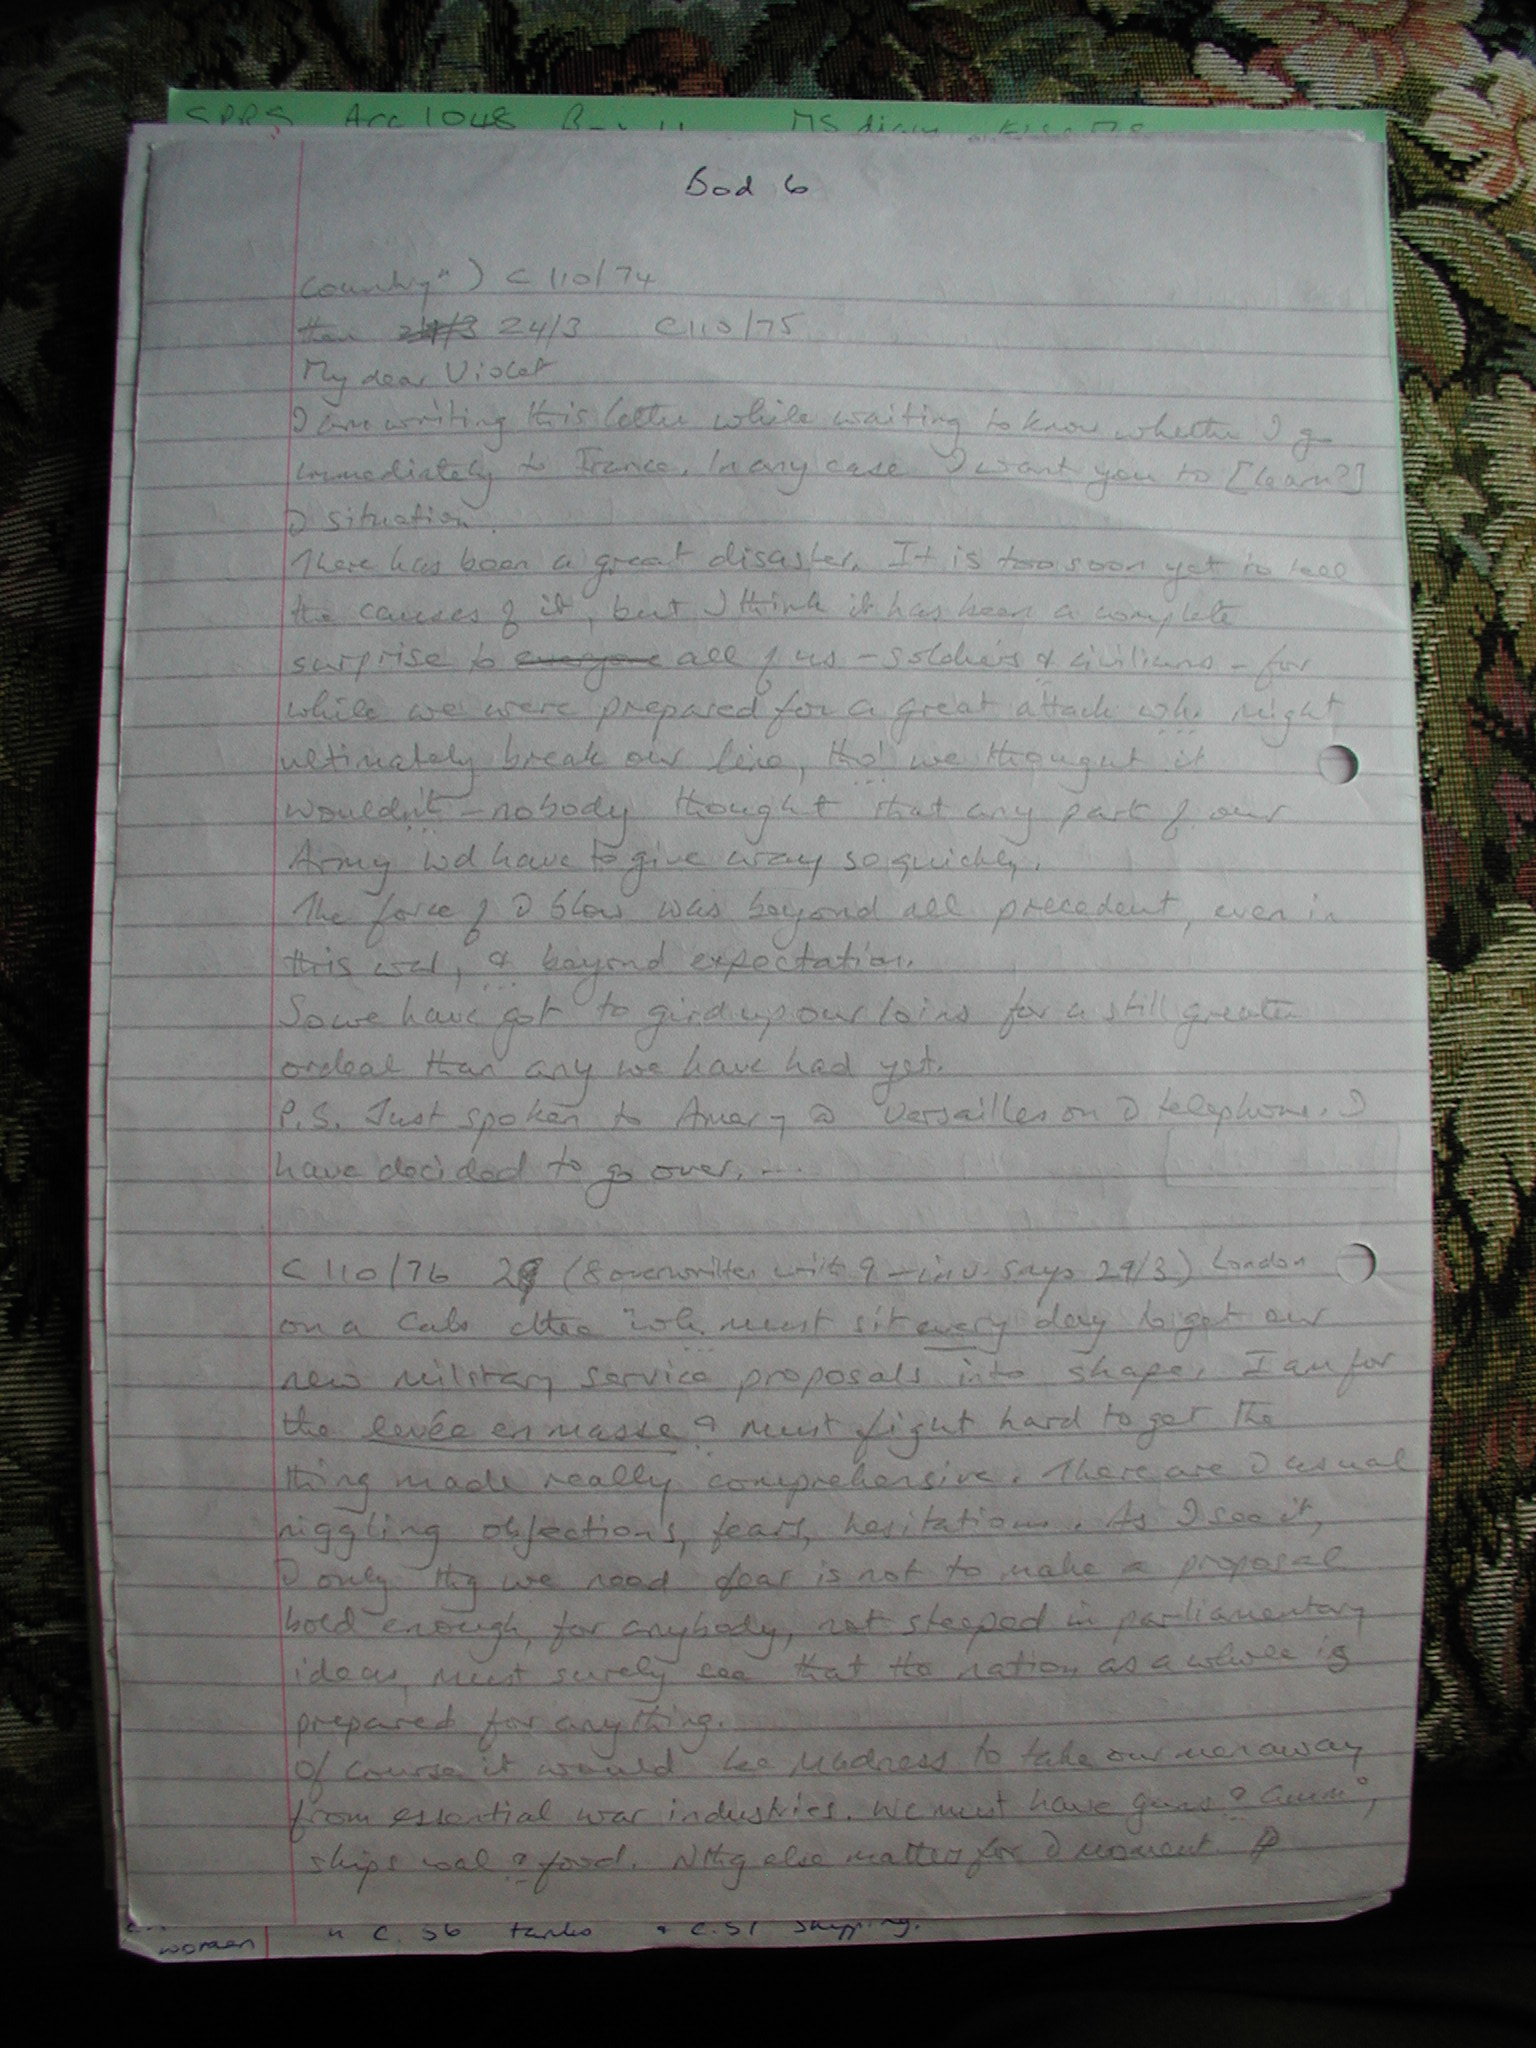 SPRS Acc 1048 MS diary
Bod 6
country") C 110/74
then 24/3 24/3 C110/75
My dear Violet
I am writing this letter while waiting to know whether I go
immediately to France. In any case I want you to [learn?]
situation.
There has been a great disaster. It is too soon yet to tell
the causes of it, but I think it has been a complete
surprise to everyone all of us - soldiers & civilians - for
while we were prepared for a great attack wh. might
ultimately break our line, tho' we thought it
wouldn't - nobody thought that any part of our
Army wd have to give way so quickly.
The force of blow was beyond all precedent, even in
this war, & beyond expectation.
So we have got to gird up our loins for a still greater
ordeal than any we have had yet.
P.S. Just spoken to Amery @ Versailles on telephone. I
have decided to go over. ....
C 110/76 29 (8 overwritten with 9 - inv. says 29/3) London
on a Cab cttee "wh. must sit every day to get our
new military service proposals into shape. I am for
the levée en masse & must fight hard to get the
thing made really comprehensive. There are usual
niggling objections, fears, hesitations. As I see it,
only thg we need fear is not to make a proposal
bold enough, for anybody, not steeped in parliamentary
ideas, must surely see that the nation as a whole is
prepared for anything.
Of course it would be madness to take our men away
from essential war industries. We must have guns & ammo,
ships coal & food. Nthg else matters for moment.
women " C. 56 tanks & C.57 shipping.